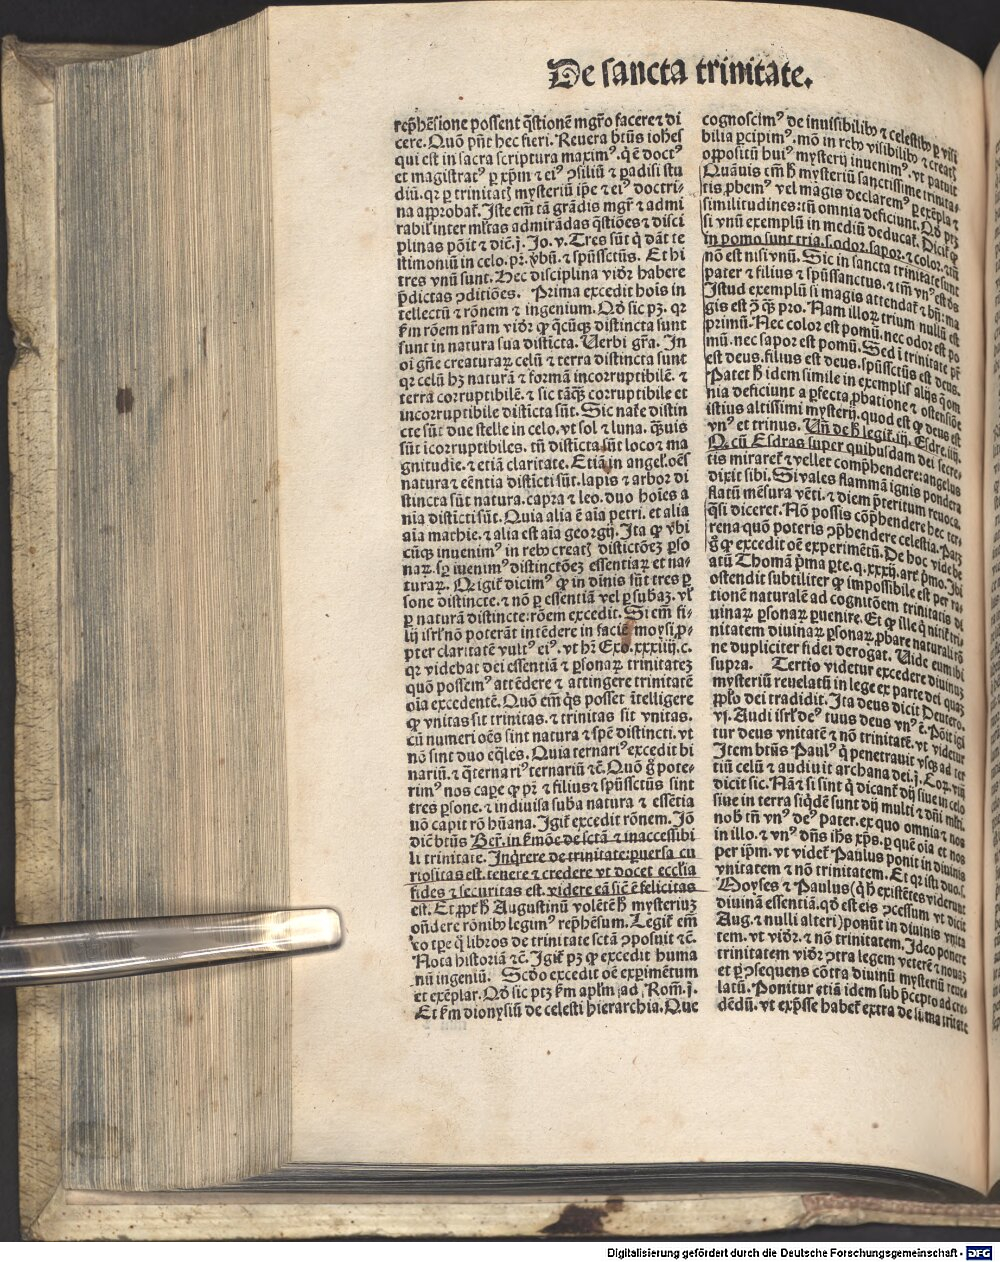 De sancta trinitate.
rep̄hēsione possent q̄stionē mgr̄o facere ⁊ di
cere. Quō pn̄t hec fieri. Reuera btūs ioh̄es
qui est in sacra scriptura maxim⁹. q̄ ē doct⁹
et magistrat⁹ ꝑ xp̄m ⁊ ei⁹ ↄsiliū ⁊ ꝑadisi stu
diū. qr ꝑ trinitatꝭ mysteriū ip̄e ⁊ ei⁹ doctri-
na approbat̄. Iste em̄ tā grādis mgr̄ ⁊ admi
rabil̄ inter ml̄tas admirādas q̄stiōes ⁊ disci
plinas pōit ⁊ dic̄ .j. Io. v. Tres sūt q̄ dāt te
stimoniū in celo. pr̄. v̄bū. ⁊ sp̄ussctūs. Et hi
tres vnū sunt. Hec disciplina vid̄r habere
p̄dictas ↄditiōes. Prima excedit hoīs in
tellectū ⁊ rōnem ⁊ ingenium. Qd̄ sic pꝫ. qr
ẜm rōem nr̄am vid̄r ꝙ q̄cūqꝫ distincta sunt
sunt in natura sua disticta. Uerbi gr̄a. In
oī gn̄e creaturaꝝ celū ⁊ terra distincta sunt
qr celū hꝫ naturā ⁊ formā incorruptibilē. ⁊
terra corruptibilē. ⁊ sic tāqꝫ corruptibile et
incorruptibile disticta sūt. Sic nat̄e distin
cte sūt due stelle in celo. vt sol ⁊ luna. q̄uis
sūt īcorruptibiles. tn̄ disticta sūt loco ⁊ ma
gnitudīe. ⁊ etiā claritate. Etiā in angel̄. oēs
natura ⁊ eēntia disticti sūt. lapis ⁊ arbor di
stincta sūt natura. capra ⁊ leo. duo hoīes a
nia disticti sūt. Quia alia ē aīa petri. et alia
aīa mathie. ⁊ alia est aīa georgij. Ita ꝙ vbi
cūqꝫ inuenim⁹ in rebꝰ creatꝭ distictōeꝫ ꝑso
naꝝ. ibi īuenim⁹ distinctōeꝫ essentiaꝝ et na-
turaꝝ. Qr igit̄ dicim⁹ ꝙ in diuīs sūt tres ꝑ
sone distincte. ⁊ nō ꝑ essentiā vel ꝑ subāꝫ. vl̄
ꝑ naturā distincte: rōem excedit. Si em̄ fi-
lij isrl̄ nō poterāt intēdere in faciē moysi, ꝓ-
pter claritatē vult⁹ ei⁹. vt hr̄ Exo. xxxiiij. c.
qr videbat dei essentiā ⁊ ꝑsonaꝝ trinitateꝫ
quō possem⁹ attēdere ⁊ attingere trinitatē
oīa excedentē. Quō em̄ q̄s posset ītelligere
ꝙ vnitas sit trinitas. ⁊ trinitas sit vnitas.
cū numeri oēs sint natura ⁊ spē distincti. vt
nō sint duo eq̄les. Quia ternari⁹ excedit bi
nariū. ⁊ q̄ternari⁹ ternariū ⁊c̄. Quō g̊ pote-
rim⁹ nos caꝑe ꝙ pr̄ ⁊ filius ⁊ sp̄ussctūs sint
tres ꝑsone. ⁊ indiuisa suba natura ⁊ essētia
nō capit rō hūana. Igit̄ excedit rōnem. Iō
dic̄ btūs Ber̄. in ẜmōe de sctā ⁊ inaccessibi
li trinitate. Inq̄rere de trinitate: ꝑuersa cu
riositas est. tenere ⁊ credere vt docet eccl̄ia
fides ⁊ securitas est. videre eā sic̄ ē felicitas
est. Et ꝓpt̄ h̄ Augustinū volētē h̄ mysteriuꝫ
ondere rōnibꝰ legim⁹ rep̄hēsum. Legit̄ em̄
eo tꝑe q̄ libros de trinitate sctā ↄposuit ⁊c̄.
Nota historiā ⁊c̄. Igit̄ pꝫ ꝙ excedit huma
nū ingeniū. Scd̄o excedit oē exꝑimētum
et exēplar. Qd̄ sic ptꝫ ẜm apl̄m ad Rom̄. j.
Et ẜm dionysiū de celesti hierarchia. Que
cognoscim⁹ de inuisibilibꝰ ⁊ celestibꝰ ꝑ visi
bilia ꝑcipim⁹. mō in rebꝰ visibilibꝰ ⁊ creatꝭ
oppositū hui⁹ mysterij inuenim⁹. vt patuit
Quāuis tm̄ h̄ mysteriū sanctissime trinita-
tis ꝓbem⁹ vel magis declarem⁹ ꝑ exēpla ⁊
similitudines: tn̄ omnia deficiunt. Qd̄ ptꝫ
si vnū exemplū in mediū deducat̄. Dicit̄ ꝙ
in pomo sunt tria. s. odor. sapor. ⁊ color. ⁊ tn̄
nō est nisi vnū. Sic in sancta trinitate sunt
pater ⁊ filius ⁊ sp̄ussanctus. ⁊ tm̄ vn⁹ est de⁹
Istud exemplū si magis attendat̄ ⁊ bn̄: ma
gis est ↄ̄ qꝫ pro. Nam illoꝝ trium nullū est
primū. Nec color est pomū. nec odor est po
mū. nec sapor est pomū. Sed ī trinitate pr̄
est deus. filius est deus. sp̄ussctūs est deus.
Patet h̄ idem simile in exemplis alijs qm̄ om
nia deficiunt a ꝑfecta ꝓbatione ⁊ ostensiōe
istius altissimi mysterij. quod est ꝙ deus est
vn⁹ et trinus. Un̄ de h̄ legit̄ .iij. Esdre .iiij.
Qr cū Esdras super quibusdam dei secre-
tis miraret̄ ⁊ vellet comp̄hendere: angelus
dixit sibi. Si vales flammā ignis pondera
flatū mēsura vēti. ⁊ diem p̄teritum reuoca.
q̄si diceret. Nō possis cōp̄hendere hec ter-
rena quō poteris ↄp̄hendere celestia. Patꝫ
g̊ ꝙ excedit oē experimētū. De hoc vide be
atū Thomā p̄ma ꝑte. q. xxxij. art̄. p̄mo. Ibi
ostendit subtiliter ꝙ impossibile est per ra-
tionē naturalē ad cognitōem trinitatis di
uinaꝝ ꝑsonaꝝ ꝑuenire. Et ꝙ ille q̄ nitit̄ tri-
nitatem diuinaꝝ ꝑsonaꝝ ꝓbare naturali rō
ne dupliciter fidei derogat. Uide eum ibi
supra. Tertio videtur excedere diuinuꝫ
mysteriū reuelatū in lege ex parte dei quaꝫ
ppl̄o dei tradidit. Ita deus dicit Deutero.
vj. Audi isrl̄ de⁹ tuus deus vn⁹ ē. Pōit igi
tur deus vnitatē ⁊ nō trinitatē. vt videtur
Item btūs Paul⁹ q̄ penetrauit vsqꝫ ad ter
tiū celū ⁊ audiuit archana dei. j. Cor̄. viij
dicit sic. Nā ⁊ si sint q̄ dicant̄ dij siue in celo
siue in terra siqdē sunt dij multi ⁊ dn̄i ml̄ti.
nob̄ tn̄ vn⁹ de⁹ pater. ex quo omnia ⁊ nos
in illo. ⁊ vn⁹ dn̄s ih̄s xp̄s. ꝑ quē oīa et nos
per ip̄m. vt videt̄ Paulus ponit in diuinis
vnitatem ⁊ nō trinitatem. Et qr isti duo. s.
Moyses ⁊ Paulus (q̄ h̄ existētes viderunt
diuinā essentiā. qd̄ est eis ↄcessum vt dicit
Aug. ⁊ nulli alteri) ponūt in diuinis vnita
tem. vt vid̄r. ⁊ nō trinitatem. Ideo ponere
trinitatem vid̄r ↄtra legem veterē ⁊ nouaꝫ
et ꝑ ↄsequens cōtra diuinū mysteriū reue-
latū. Ponitur etiā idem sub p̄cepto ad cre-
dēdū. vt exp̄sse habet̄ extra de sūma trītate
Digitalisierung gefördert durch die Deutsche Forschungsgemeinschaft - DFG